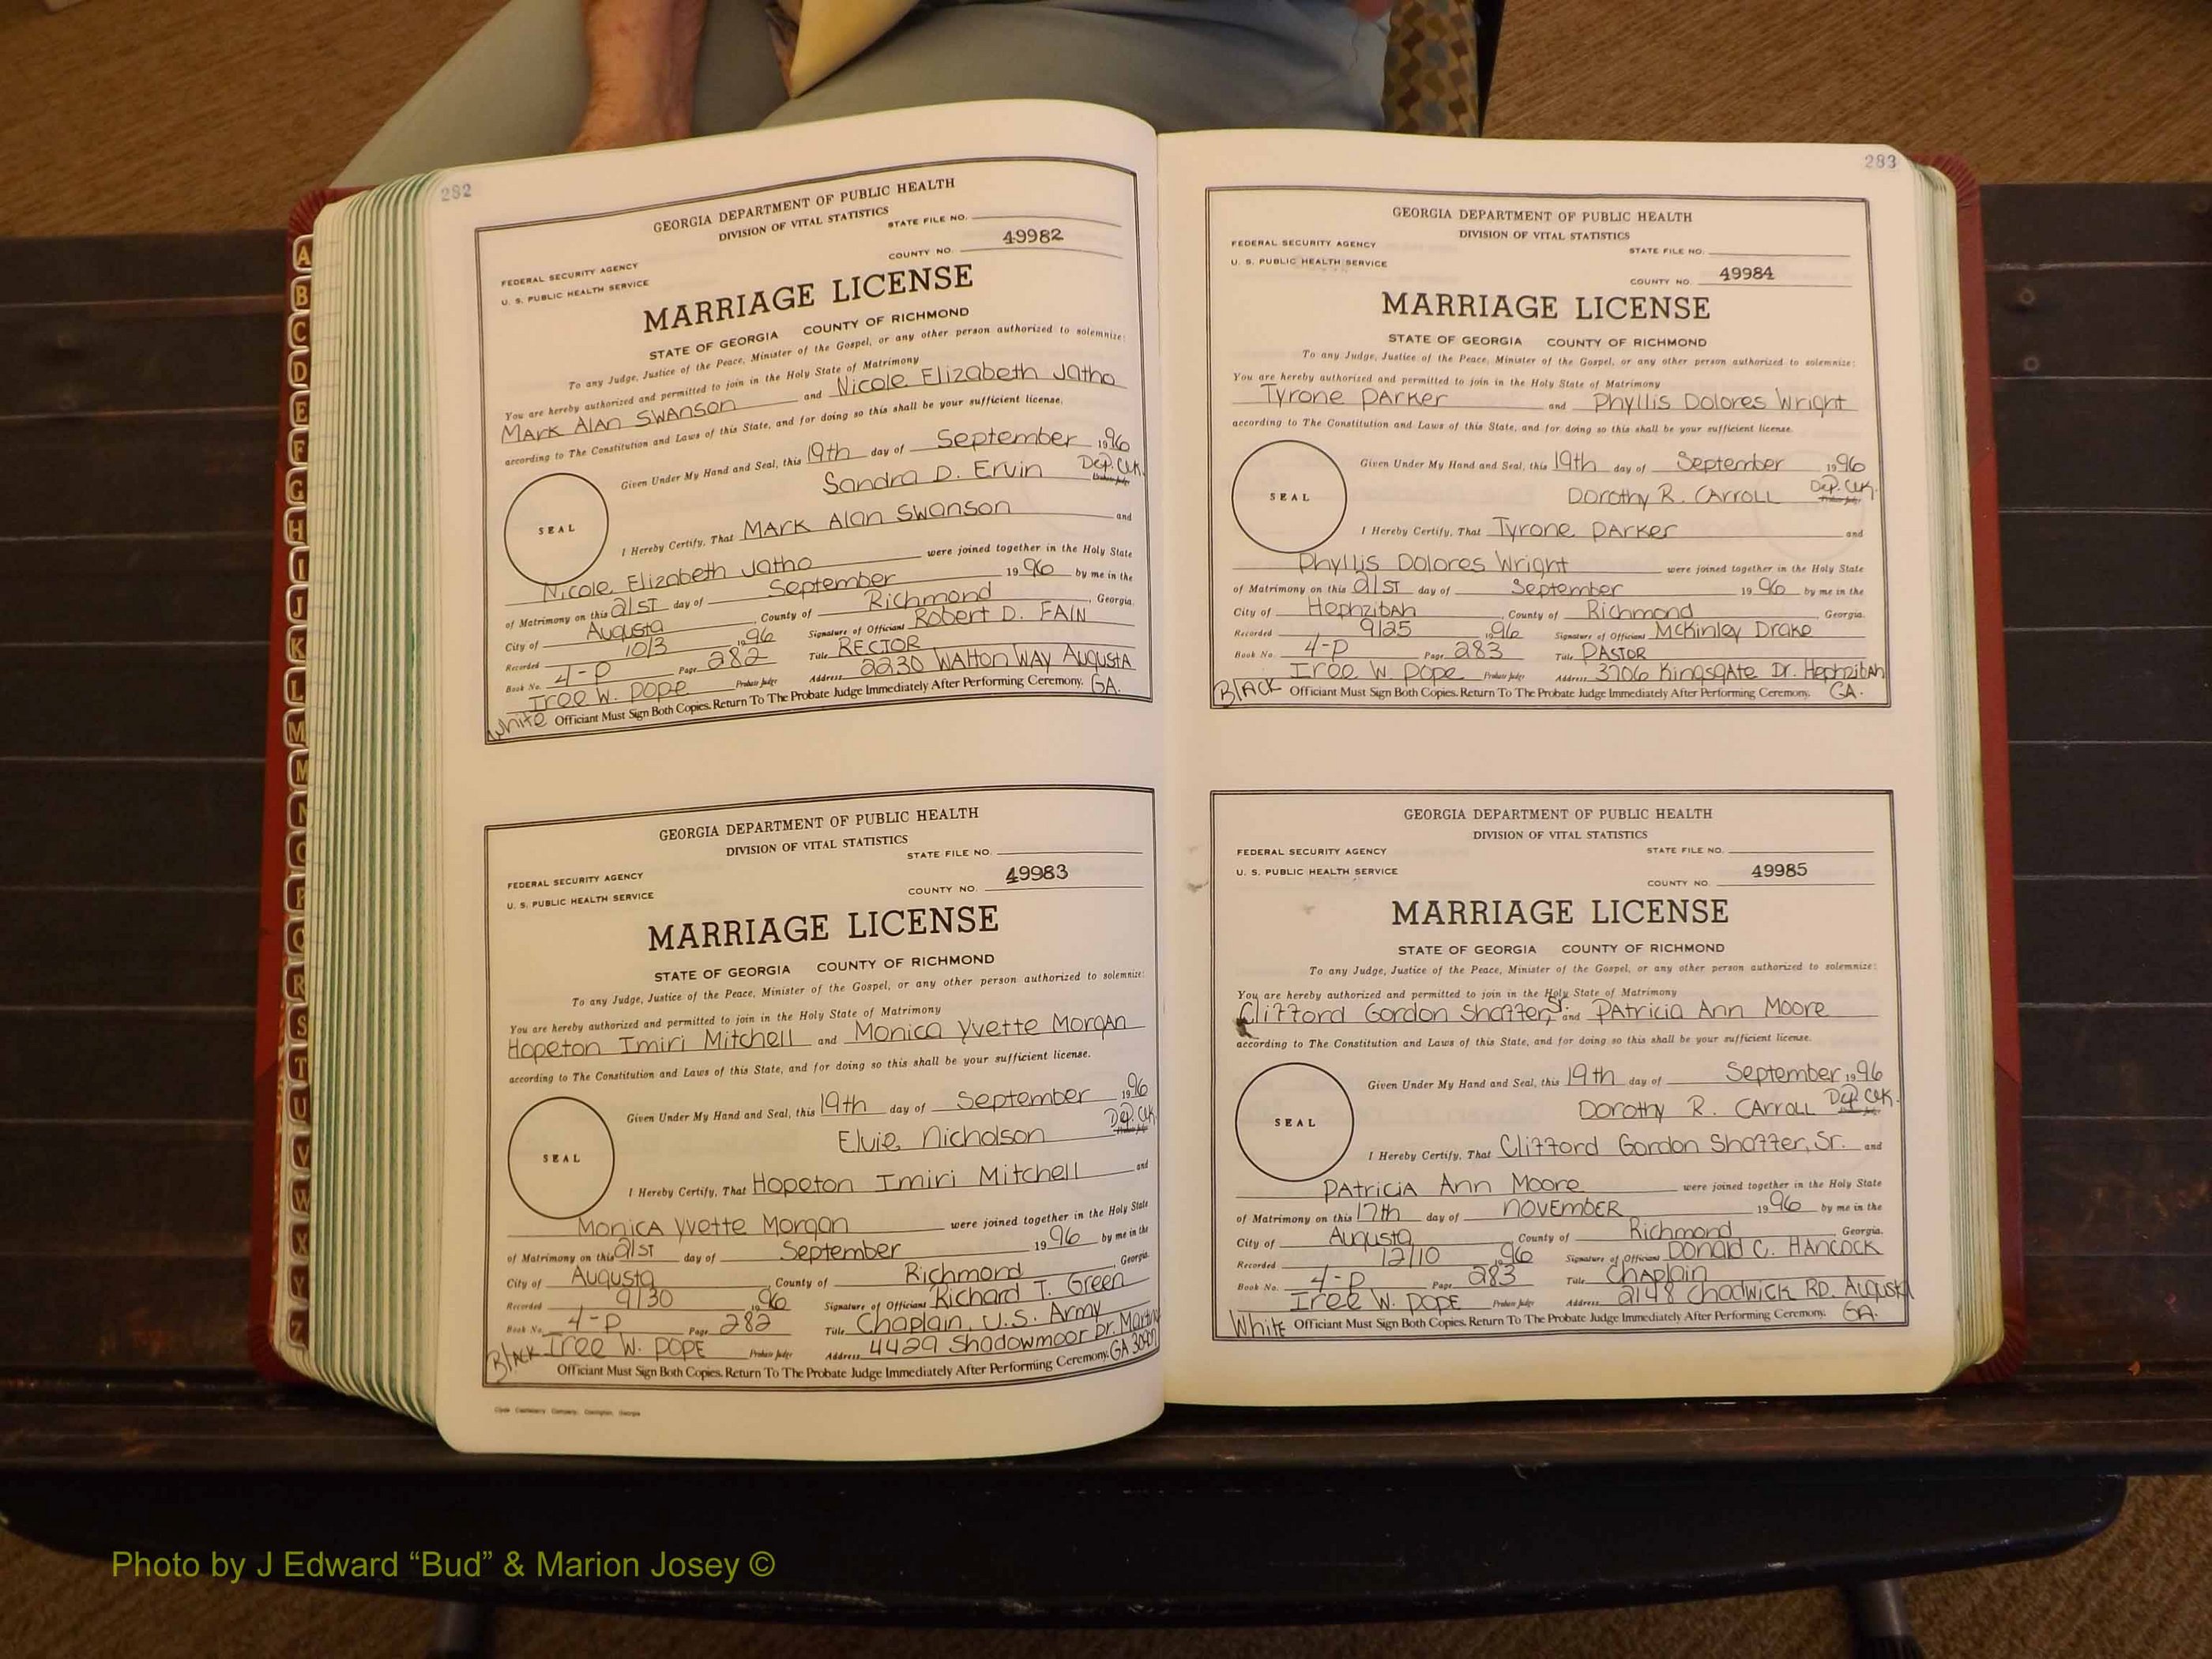 282
GEORGIA DEPARTMENT OF PUBLIC HEALTH
DIVISION OF VITAL STATISTICS
STATE FILE NO.
FEDERAL SECURITY AGENCY
U. S. PUBLIC HEALTH SERVICE
COUNTY NO. 49982
MARRIAGE LICENSE
STATE OF GEORGIA COUNTY OF RICHMOND
To any Judge, Justice of the Peace, Minister of the Gospel, or any other person authorized to solemnize:
You are hereby authorized and permitted to join in the Holy State of Matrimony
Mark Alan Swanson and Nicole Elizabeth Jatho
according to The Constitution and Laws of this State, and for doing so this shall be your sufficient license.
Given Under My Hand and Seal, this 19th day of September 1996
Sandra D. Ervin Dep. Clk.
SEAL
I Hereby Certify, That Mark Alan Swanson and
Nicole Elizabeth Jatho were joined together in the Holy State
of Matrimony on this 21st day of September 1996 by me in the
City of Augusta, County of Richmond, Georgia.
Recorded 10/3 1996 Signature of Officiant Robert D. Fain
Book No. 4-P Page 282 Title RECTOR
Iree W. Pope Probate Judge Address 2230 Walton Way Augusta
White Officiant Must Sign Both Copies. Return To The Probate Judge Immediately After Performing Ceremony. GA.
GEORGIA DEPARTMENT OF PUBLIC HEALTH
DIVISION OF VITAL STATISTICS
STATE FILE NO.
FEDERAL SECURITY AGENCY
U. S. PUBLIC HEALTH SERVICE
COUNTY NO. 49983
MARRIAGE LICENSE
STATE OF GEORGIA COUNTY OF RICHMOND
To any Judge, Justice of the Peace, Minister of the Gospel, or any other person authorized to solemnize:
You are hereby authorized and permitted to join in the Holy State of Matrimony
Hopeton Imiri Mitchell and Monica Yvette Morgan
according to The Constitution and Laws of this State, and for doing so this shall be your sufficient license.
Given Under My Hand and Seal, this 19th day of September 1996
Elvie Nicholson Dep. Clk.
SEAL
I Hereby Certify, That Hopeton Imiri Mitchell and
Monica Yvette Morgan were joined together in the Holy State
of Matrimony on this 21st day of September 1996 by me in the
City of Augusta, County of Richmond, Georgia.
Recorded 9/30 1996 Signature of Officiant Richard T. Green
Book No. 4-P Page 282 Title Chaplain, U.S. Army
Iree W. Pope Probate Judge Address 4429 Shadowmoor Dr. Martinez
Black Officiant Must Sign Both Copies. Return To The Probate Judge Immediately After Performing Ceremony. GA 30907
283
GEORGIA DEPARTMENT OF PUBLIC HEALTH
DIVISION OF VITAL STATISTICS
FEDERAL SECURITY AGENCY STATE FILE NO.
U. S. PUBLIC HEALTH SERVICE
COUNTY NO. 49984
MARRIAGE LICENSE
STATE OF GEORGIA COUNTY OF RICHMOND
To any Judge, Justice of the Peace, Minister of the Gospel, or any other person authorized to solemnize:
You are hereby authorized and permitted to join in the Holy State of Matrimony
Tyrone Parker and Phyllis Dolores Wright
according to The Constitution and Laws of this State, and for doing so this shall be your sufficient license.
Given Under My Hand and Seal, this 19th day of September 1996
Dorothy R. Carroll Dep. Clk.
SEAL
I Hereby Certify, That Tyrone Parker and
Phyllis Dolores Wright were joined together in the Holy State
of Matrimony on this 21st day of September 1996 by me in the
City of Hephzibah, County of Richmond, Georgia.
Recorded 9/25 1996 Signature of Officiant McKinley Drake
Book No. 4-P Page 283 Title Pastor
Iree W. Pope Probate Judge Address 3706 Kingsgate Dr. Hephzibah
Black Officiant Must Sign Both Copies. Return To The Probate Judge Immediately After Performing Ceremony. GA.
GEORGIA DEPARTMENT OF PUBLIC HEALTH
DIVISION OF VITAL STATISTICS
FEDERAL SECURITY AGENCY STATE FILE NO.
U. S. PUBLIC HEALTH SERVICE
COUNTY NO. 49985
MARRIAGE LICENSE
STATE OF GEORGIA COUNTY OF RICHMOND
To any Judge, Justice of the Peace, Minister of the Gospel, or any other person authorized to solemnize:
You are hereby authorized and permitted to join in the Holy State of Matrimony
Clifford Gordon Shaffer, Sr. and Patricia Ann Moore
according to The Constitution and Laws of this State, and for doing so this shall be your sufficient license.
Given Under My Hand and Seal, this 19th day of September 1996
Dorothy R. Carroll Dep. Clk.
SEAL
I Hereby Certify, That Clifford Gordon Shaffer, Sr. and
Patricia Ann Moore were joined together in the Holy State
of Matrimony on this 17th day of November 1996 by me in the
City of Augusta, County of Richmond Georgia.
Recorded 12/10 1996 Signature of Officiant Donald C. Hancock
Book No. 4-P Page 283 Title Chaplain
Iree W. Pope Probate Judge Address 2148 Chadwick Rd. Augusta
White Officiant Must Sign Both Copies. Return To The Probate Judge Immediately After Performing Ceremony. GA.
A
B
C
D
E
F
G
H
I
J
K
L
M
M
N
O
P
Q
R
S
T
U
V
W
X
Y
Z
Photo by J Edward “Bud” & Marion Josey ©